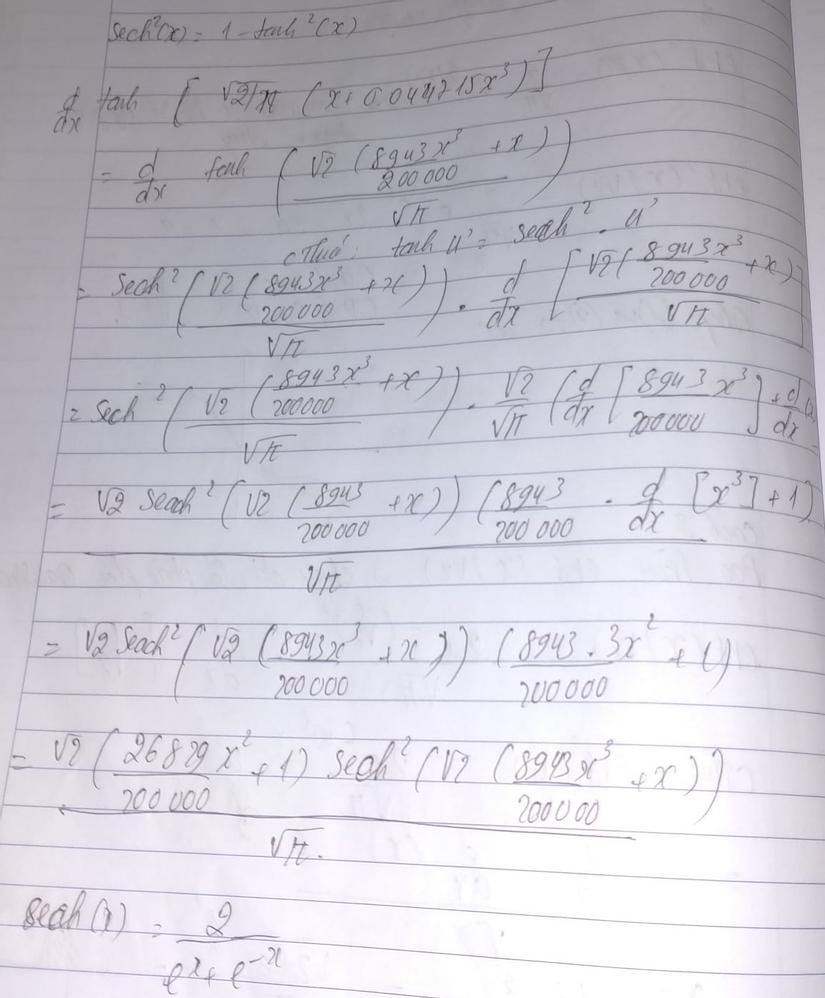 sech²(x) = 1 - tanh²(x)
d/dx tanh [ √2/π (x + 0.044715x³) ]
= d/dx tanh ( √2 ( 8943x³/200000 + x ) / √π )
tanh u' = seach² . u'
= Sech² ( √2 ( 8943x³/200000 + x ) / √π ) . d/dx [ √2 ( 8943x³/200000 + x ) / √π ]
= Sech² ( √2 ( 8943x³/200000 + x ) / √π ) . √2/√π ( d/dx [ 8943x³/200000 ] + d/dx
= √2 Seach² ( √2 ( 8943/200000 + x ) ) ( 8943/200000 . d/dx [x³] + 1 ) / √π
= √2 Seach² ( √2 ( 8943x³/200000 + x ) ) ( 8943 . 3x²/200000 + 1 )
= √2 ( 26829x²/200000 + 1 ) Seach² ( √2 ( 8943x³/200000 + x ) ) / √π.
seach (x) = 2 / eˣ + e⁻ˣ